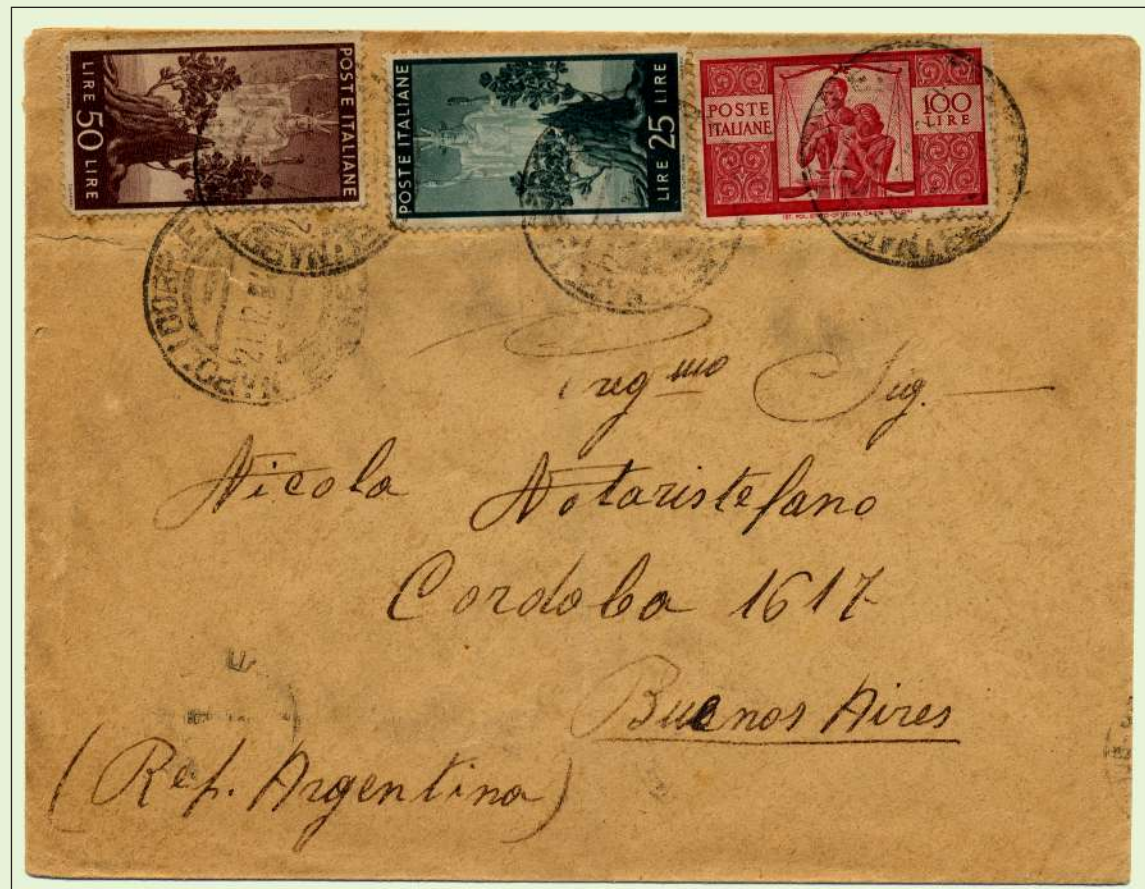 LIRE 50 LIRE
POSTE ITALIANE
POSTE ITALIANE
LIRE 25 LIRE
POSTE
ITALIANE
100
LIRE
NAPOLI
21.12.
Sig.
Nicola Notaristefano
Cordoba 1617
Buenos Aires
(Rep. Argentina)